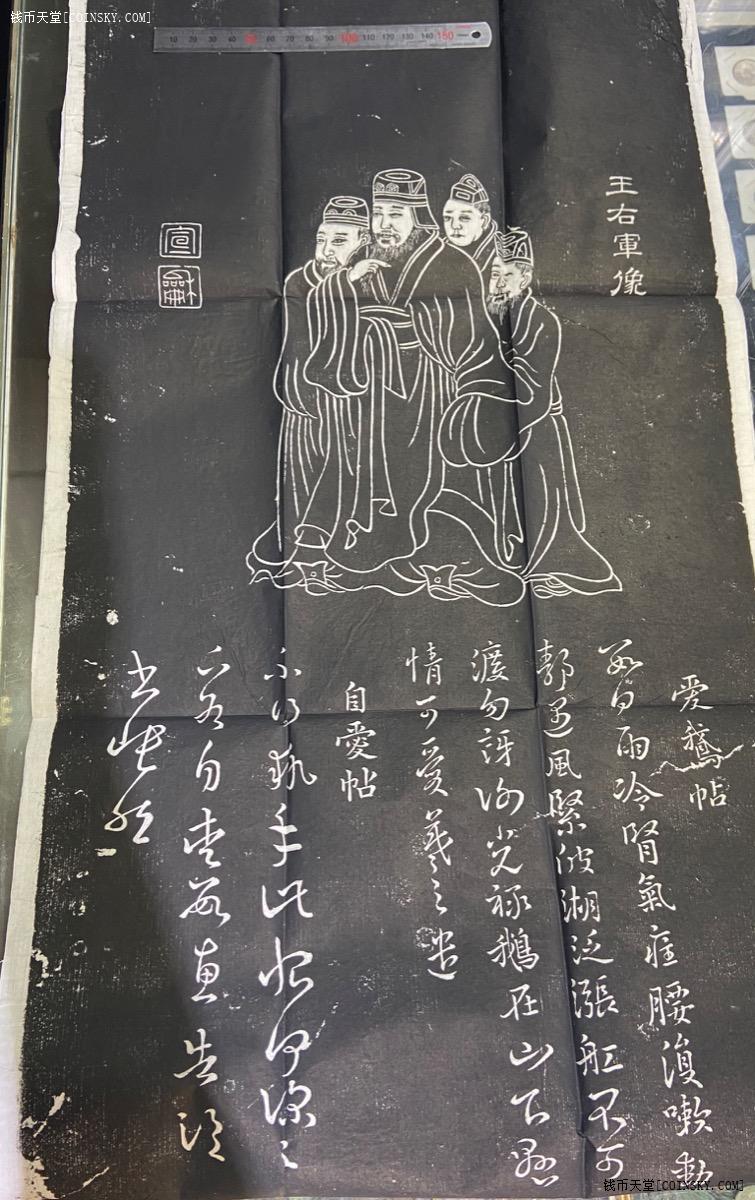 钱币天堂[COINSKY.COM]
10 20 30 40 50 60 70 80 90 100 110 120 130 140 150
王右軍像
宣龢
愛鵝帖
數日雨冷腎氣疰腰復嗽動
靜遇風緊陂湖泛漲舡不可
渡勿訝謝光祿鵝在山下懸
情可愛羲之遣
自愛帖
不得執手此恨何深足
下各自愛數惠告臨
書悵然
钱币天堂[COINSKY.COM]